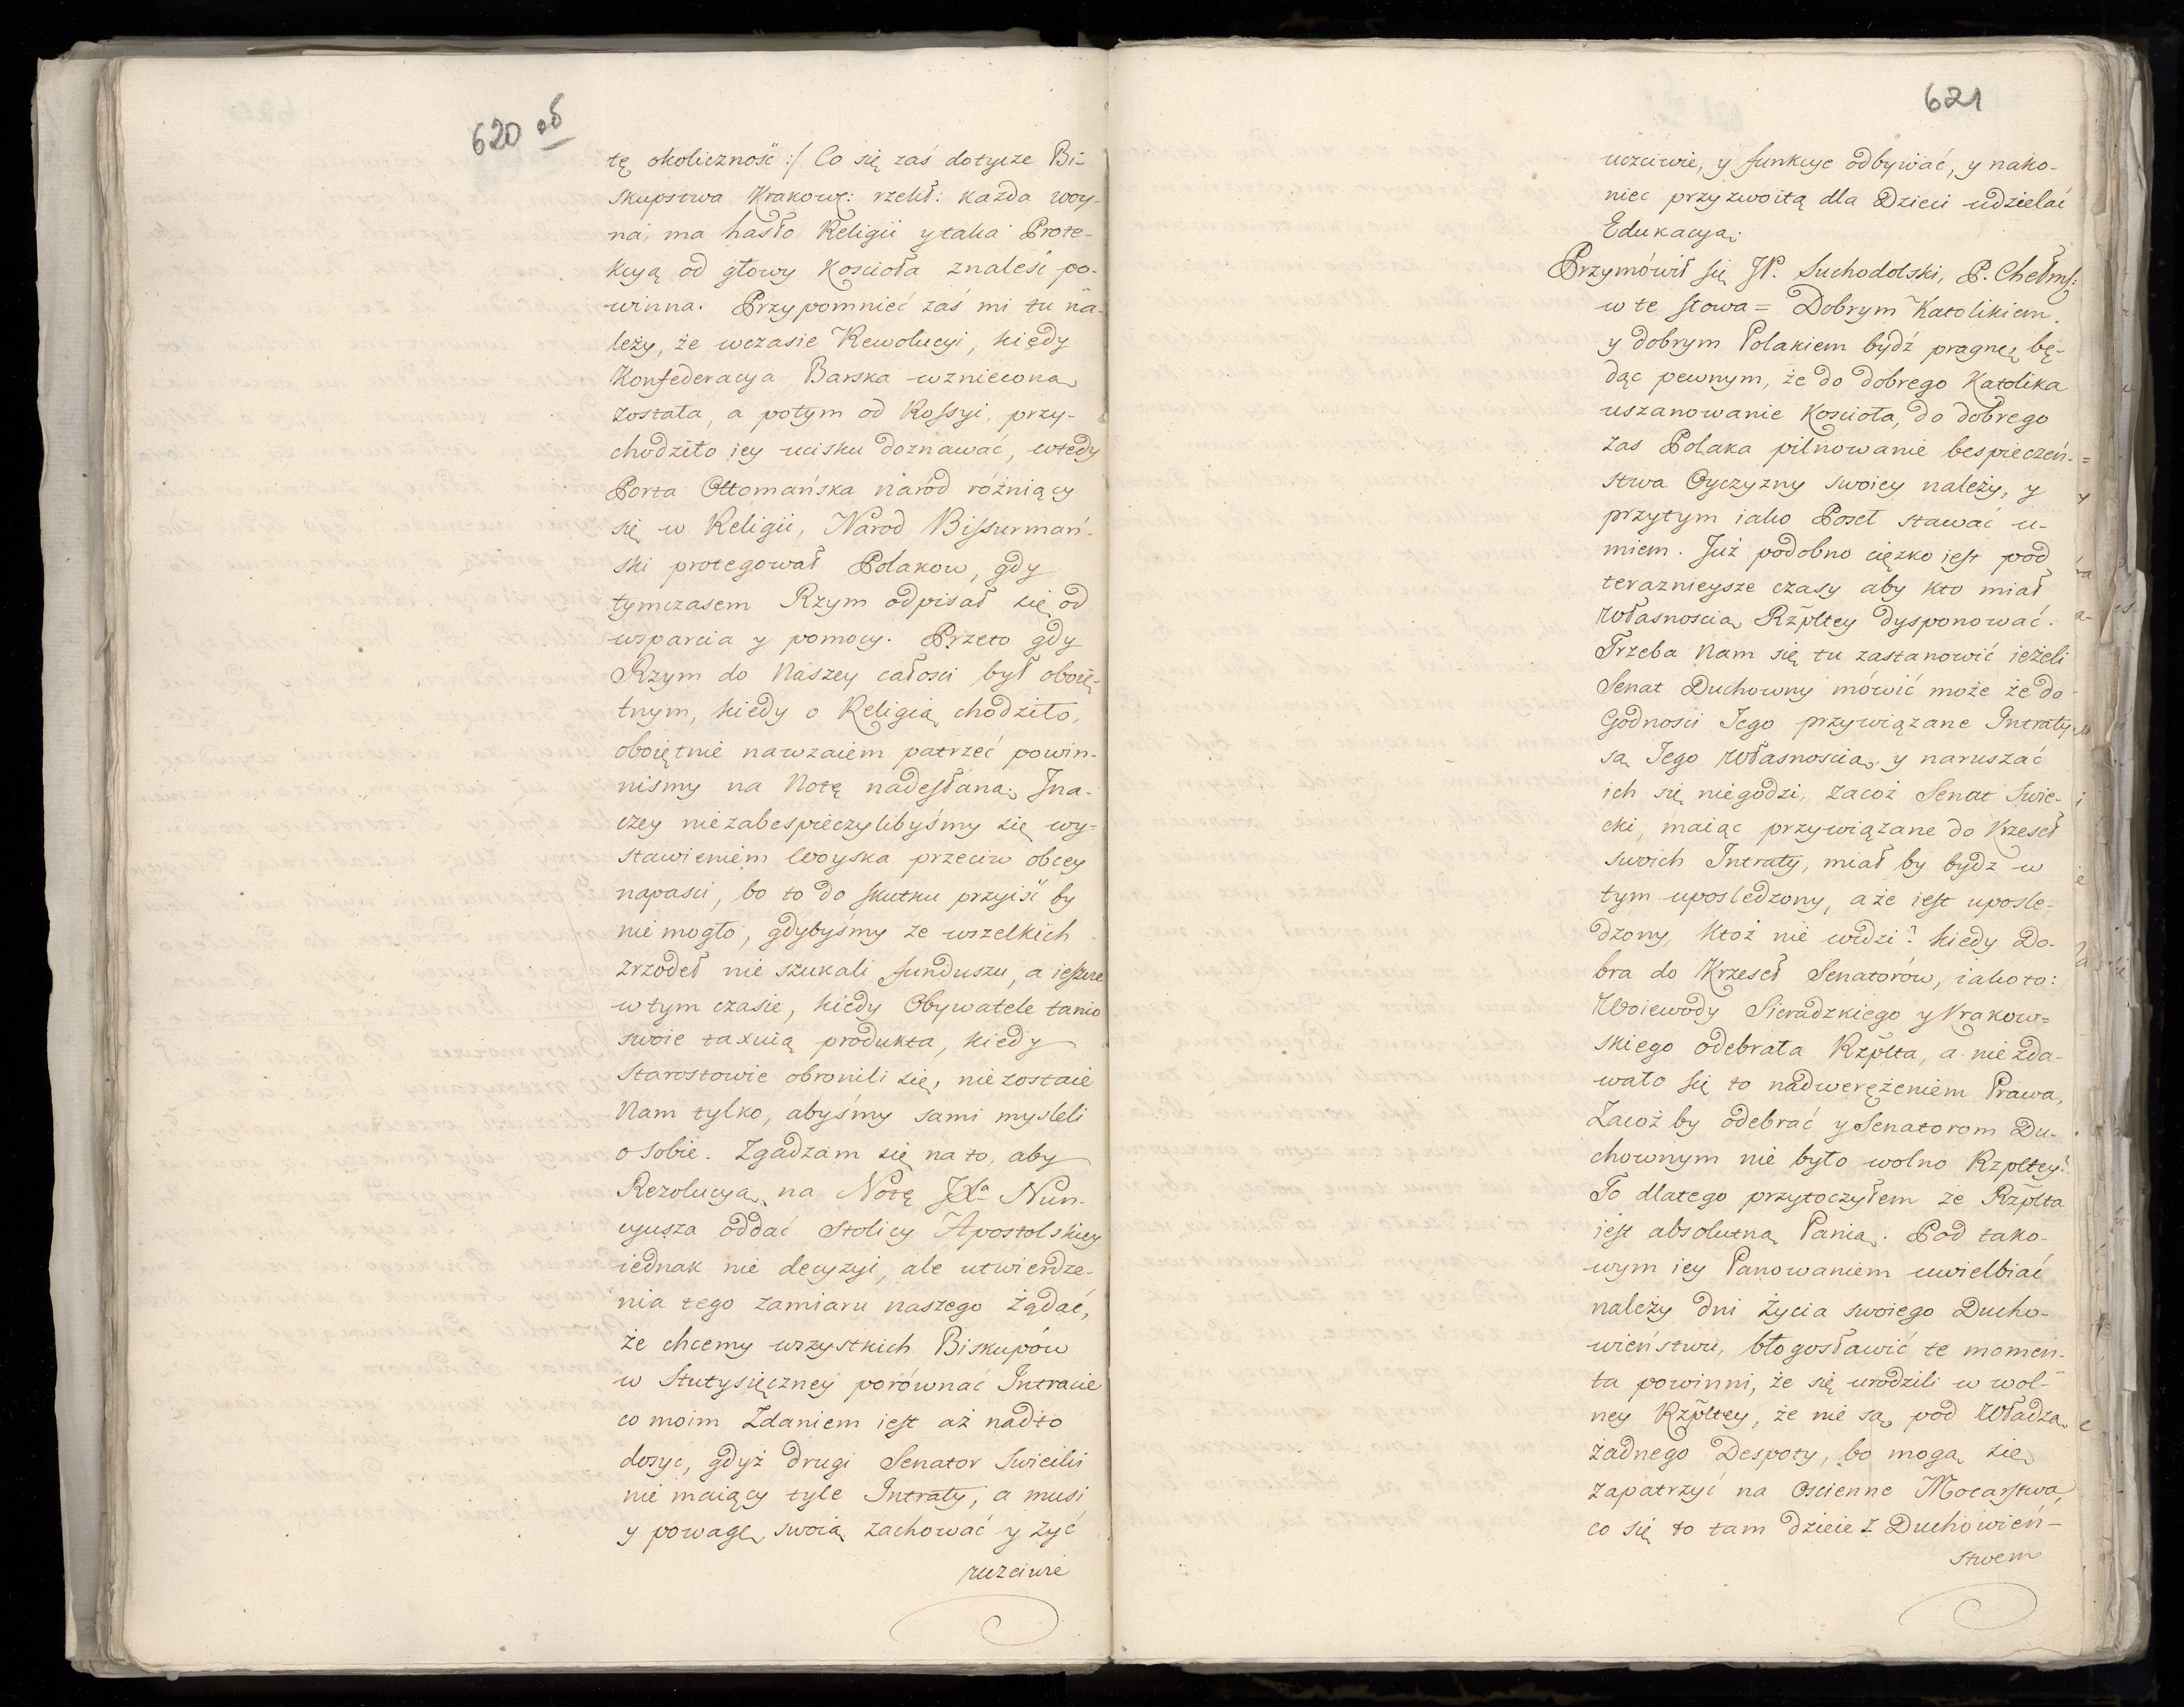 620 об
tę okoliczność :/ Co się zaś dotycze Bi-
skupstwa Krakows: rzekł: każda woy-
na, ma hasło Religii y taka Prote-
kcyą od głowy Kościoła znaleść po-
winna. Przypomnieć zaś mi tu na-
leży, że wczasie Rewolucyi, kiedy
Konfederacya Barska wzniecona
została, a potym od Rossyi, przy-
chodziło iey ucisku doznawać, wtedy
Porta Ottomańska naród różniący
się w Religii, Narod Bissurmań-
ski protegował Polakow, gdy
tymczasem Rzym odpisał się od
wsparcia y pomocy. Przeto gdy
Rzym do Naszey całosci był oboię-
tnym, kiedy o Religią chodziło,
oboiętnie nawzaiem patrzeć powin-
nismy na Notę nadesłaną; Ina-
czey niezabespieczylibyśmy się wy-
stawieniem Woyska przeciw obcey
napasci, bo to do skutku przyiść by
nie mogło, gdybyśmy ze wszelkich
zrzodeł nie szukali funduszu, a ieszcze
w tym czasie, kiedy Obywatele tanio
swoie taxuią produkta, kiedy
Starostowie obronili się, nie zostaie
Nam tylko, abyśmy sami mysleli
o sobie. Zgadzam się na to, aby
Rezolucyą na Notę JXa Nun-
cyusza oddać Stolicy Apostolskiey
iednak nie decyzyi, ale utwierdze-
nia tego zamiaru naszego żądać,
że chcemy wszystkich Biskupów
w Stutysięczney porównać Intracie
co moim Zdaniem iest aż nadto
dosyc, gdyż drugi Senator Swiecki
nie maiący tyle Intraty, a musi
y powagę swoią zachować y żyć
uczciwie
621
uczciwie, y funkcye odbywać, y nako-
niec przyzwoitą dla Dzieci udzielać
Edukacyą.
Przymówił się JP. Suchodolski, P. Chełms:
w te słowa = Dobrym Katolikiem
y dobrym Polakiem bydź pragnę, bę-
dąc pewnym, że do dobrego Katolika
uszanowanie Kościoła, do dobrego
zas Polaka pilnowanie bespieczeń-
stwa Oyczyzny swoiey należy, y
przytym iako Poseł stawać u-
miem. Już podobno ciężko iest pod
teraznieysze czasy aby kto miał
Własnoscią Rzpltey dysponować.
Trzeba Nam się tu zastanowić ieżeli
Senat Duchowny mówić może że do
Godnosci Jego przywiązane Intraty
są Jego Własnoscią y naruszać
ich się niegodzi, zacoż Senat Swie-
cki, maiąc przywiązane do Krzeseł
swoich Intraty, miał by bydz w
tym uposledzony, a że iest uposle-
dzony, któż nie widzi? kiedy Do-
bra do Krzeseł Senatorów, iako to:
Woiewody Sieradzkiego y Krakow=
skiego odebrała Rzplta, a nie zda-
wało się to nadwerężeniem Prawa,
Zacoż by odebrać y Senatorom Du-
chownym nie było wolno Rzpltey?
To dlatego przytoczyłem że Rzplta
iest absolutną Panią. Pod tako-
wym iey Panowaniem uwielbiać
należy dni życia swoiego Ducho-
wieństwu, błogosławić te momen-
ta powinni, że się urodzili w wol-
ney Rzpltey, że nie są pod Władzą
żadnego Despoty, bo mogą się
zapatrzyć na Oscienne Mocarstwa,
co się to tam dzieie z Duchowień-
stwem